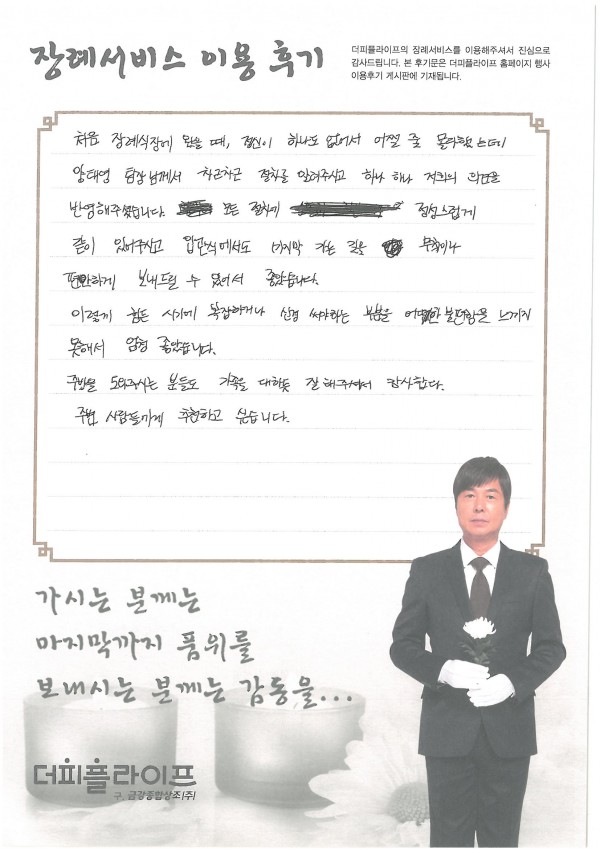 장례서비스 이용 후기
더피플라이프의 장례서비스를 이용해주셔서 진심으로
감사드립니다. 본 후기문은 더피플라이프 홈페이지 행사
이용후기 게시판에 기재됩니다.
처음 장례식장에 왔을 때, 정신이 하나도 없어서 어쩔 줄 몰라했는데
양태영 팀장님께서 차근차근 절차를 알려주시고 하나 하나 저희의 의견을
반영해주셨습니다. 모든 절차에 정성스럽게
같이 있어주시고 입관식에서도 마지막 가는 길을
편안하게 보내드릴 수 있어서 좋았습니다.
이렇게 힘든 시기에 복잡하거나 신경 써야하는 부분을 어떠한 불편함을 느끼지
못해서 엄청 좋았습니다.
주방을 도와주시는 분들도 가족을 대하듯 잘 해주셔서 감사합니다.
주변 사람들에게 추천하고 싶습니다.
가시는 분께는
마지막까지 품위를
보내시는 분께는 감동을...
더피플라이프
구. 금강종합상조(주)